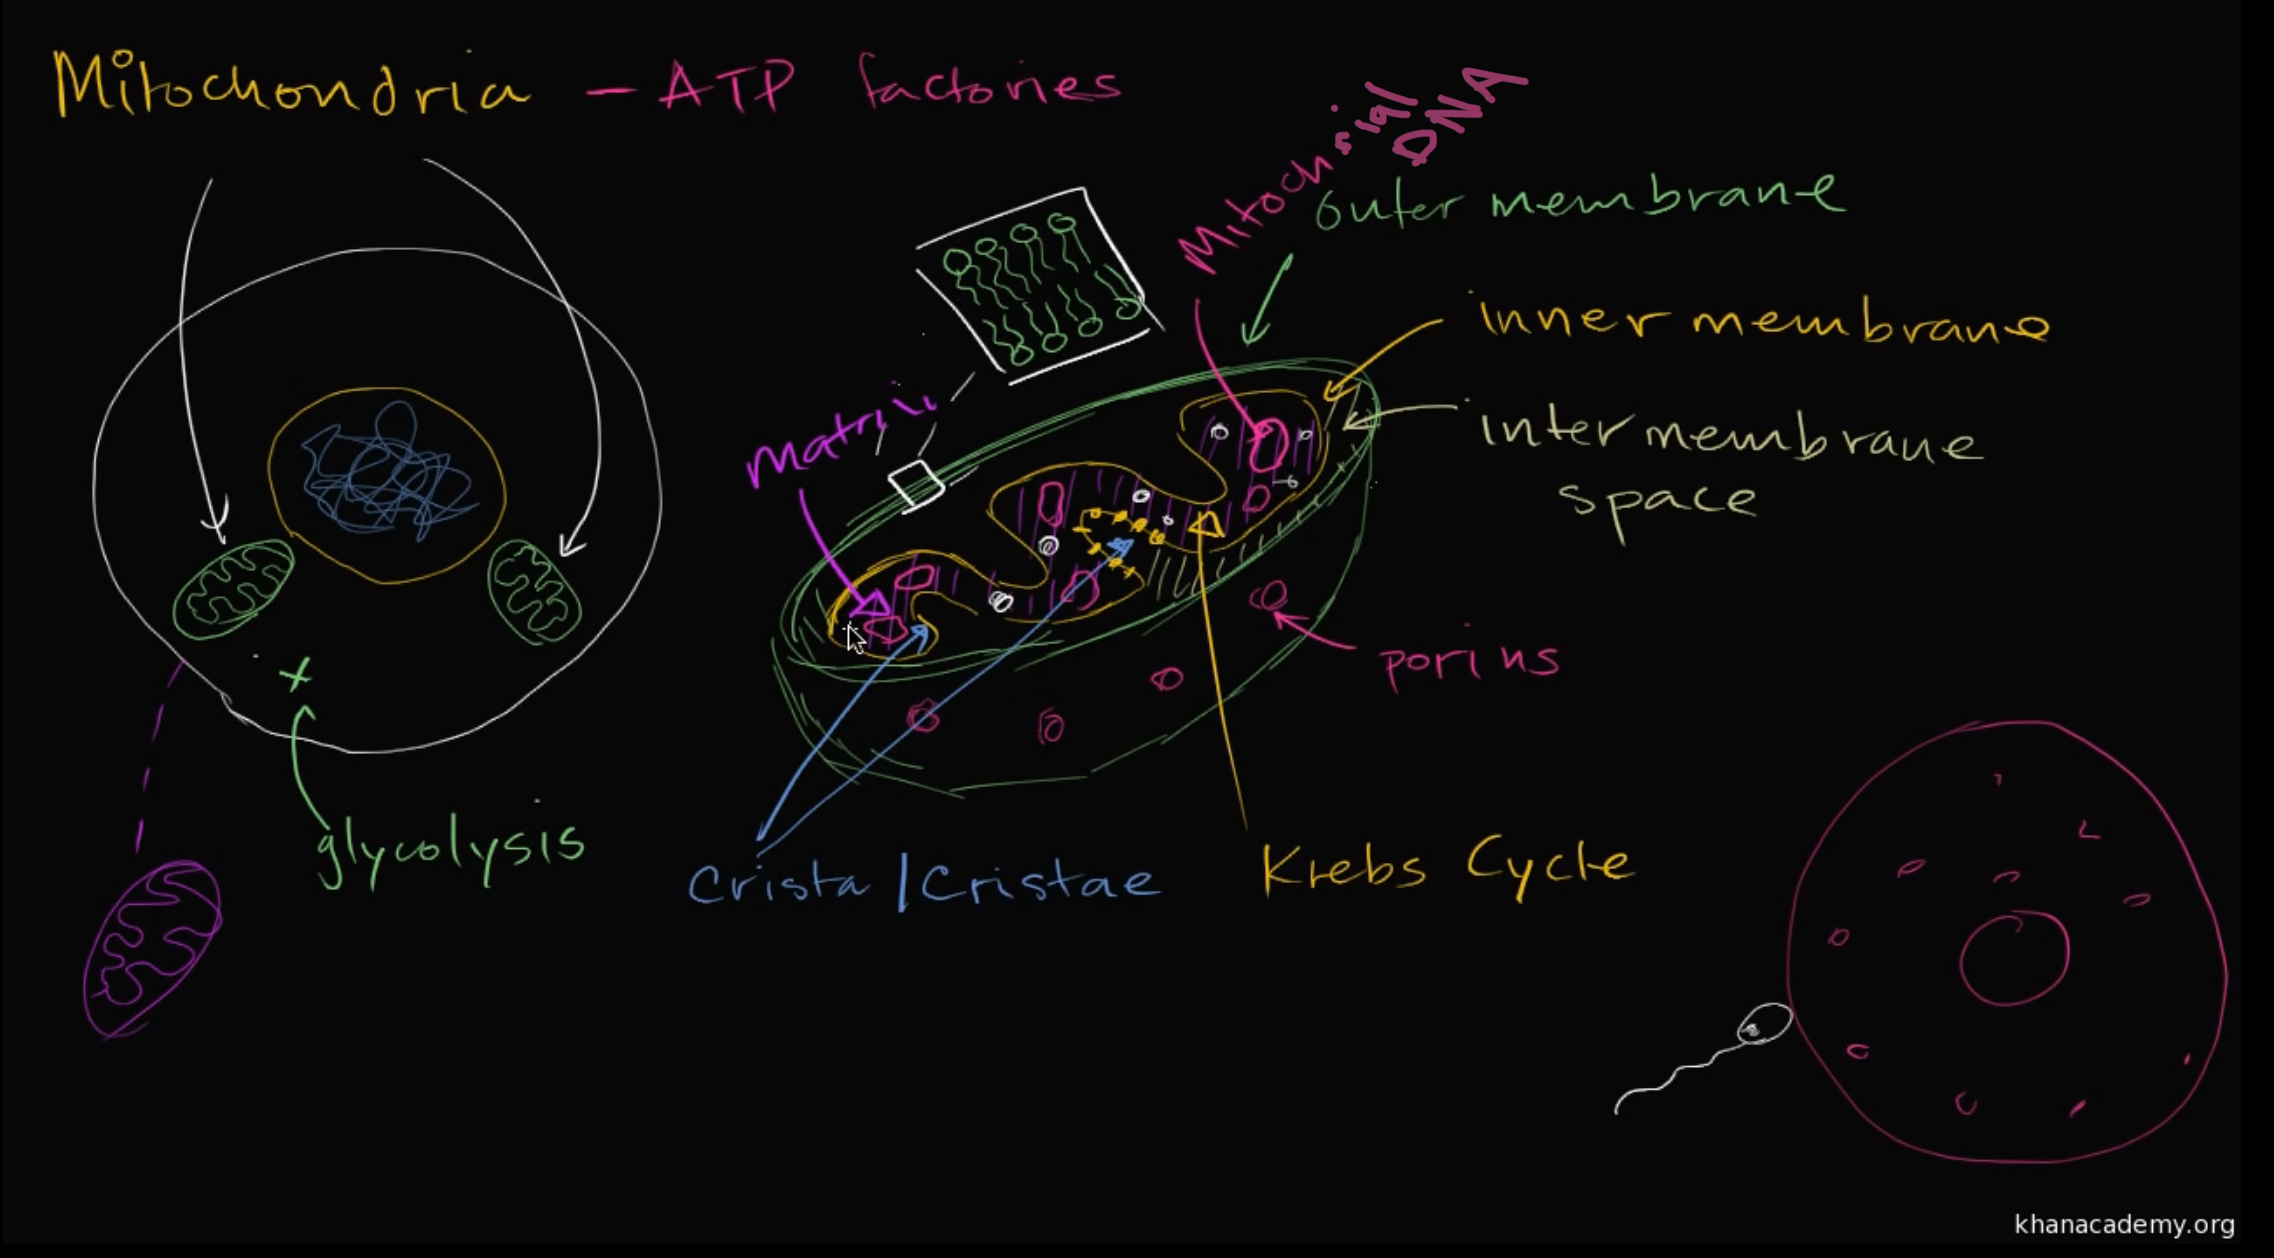 Mitochondria - ATP factories
Mitoch
DNA
outer membrane
inner membrane
inter membrane
space
Matrix
porins
glycolysis
Crista/Cristae
Krebs Cycle
khanacademy.org